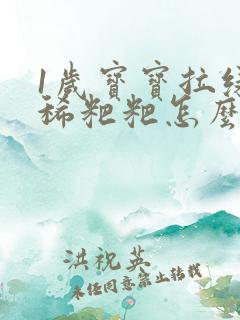 1歲寶寶拉綠
稀粑粑怎麽
洪祝英
未经同意禁止转载